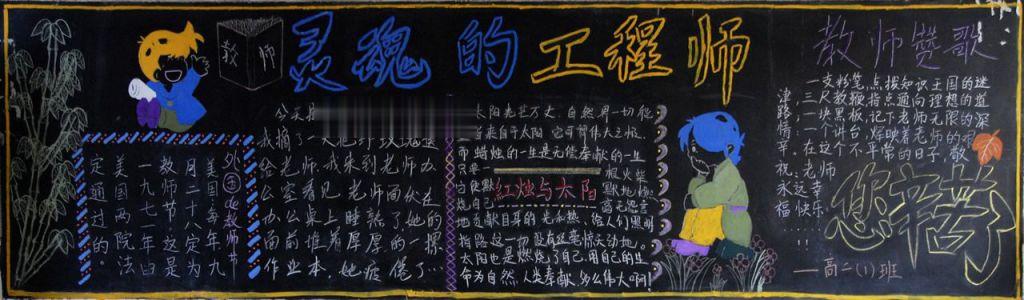 教师
灵魂的工程师
教师赞歌
外国的教师节
美国每年九
月二十八定为
教师节,这是
一九七一年由
美国两院法
定通过的。
今天是
我摘了一
给老师,我来到老师办
公室看见 老师间伏在
办公桌上睡熟了她的
面前堆着厚厚的一摞
作业本,她疲倦了…
红烛与太阳
太阳光芒万丈,自然界一切能
量来自于太阳 它可谓伟大之极,
而蜡烛的一生是无偿奉献的一生
只要一
地奉献自己的光和热,给人们照明
指路 这一切没有丝毫惊天动地。
太阳也是燃烧了自己 用自己的生
命为自然,人类奉献 多么伟大啊!
一支粉笔,点拨知识王国的迷
津,三尺教鞭,指点通向理想的道
路,一块黑板,记下老师无限的深
情,一个讲台,辉映着老师的
在这个不平常的日子,敬
祝:老师
永远幸
福,快乐
!!
您辛苦了
——高二(1)班